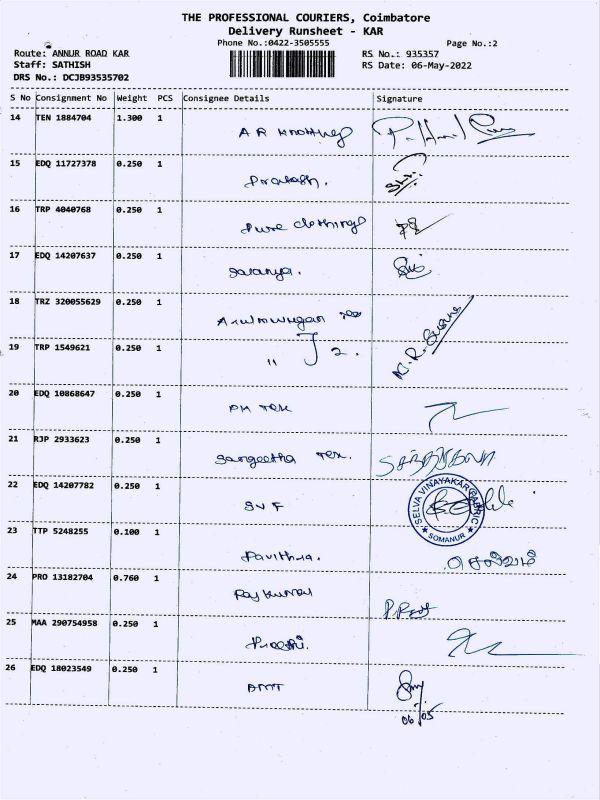 THE PROFESSIONAL COURIERS, Coimbatore
Delivery Runsheet - KAR
Phone No.:0422-3505555
Page No.:2
Route: ANNUR ROAD KAR
RS No.: 935357
Staff: SATHISH
RS Date: 06-May-2022
DRS No.: DCJB93535702
S No Consignment No Weight PCS Consignee Details Signature
14 TEN 1884704 1.300 1
A R Knotting
15 EDQ 11727378 0.250 1
Prakash.
16 TRP 4040768 0.250 1
Pure clothing
17 EDQ 14207637 0.250 1
Saranya.
18 TRZ 320055629 0.250 1
19 TRP 1549621 0.250 1
" 2.
20 EDQ 10868647 0.250 1
PM Tex
21 RJP 2933623 0.250 1
Sangeetha Tex.
22 EDQ 14207782 0.250 1
SVF
SELVA VINAYAKAR FABRIC
SOMANUR
23 TTP 5248255 0.100 1
Pavithra.
24 PRO 13182704 0.760 1
Rajkumar
25 MAA 290754958 0.250 1
Preethi.
26 EDQ 18023549 0.250 1
06/05